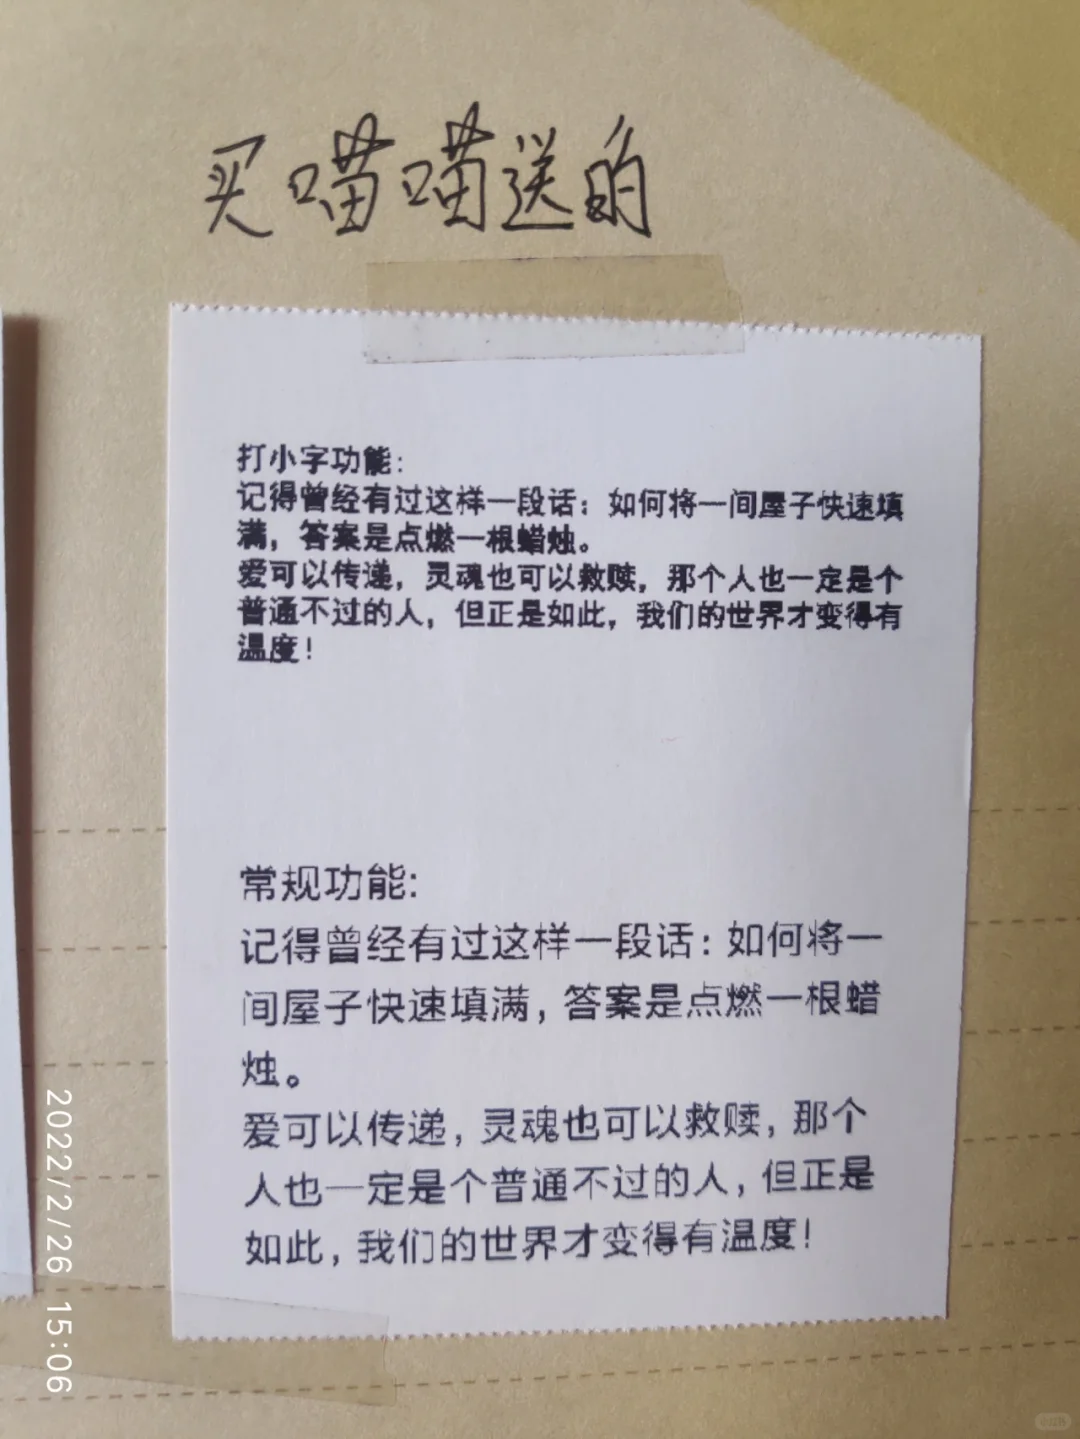 买喵喵送的
打小字功能：
记得曾经有过这样一段话：如何将一间屋子快速填
满，答案是点燃一根蜡烛。
爱可以传递，灵魂也可以救赎，那个人也一定是个
普通不过的人，但正是如此，我们的世界才变得有
温度！
常规功能:
记得曾经有过这样一段话：如何将一
间屋子快速填满，答案是点燃一根蜡
烛。
爱可以传递，灵魂也可以救赎，那个
人也一定是个普通不过的人，但正是
如此，我们的世界才变得有温度！
2022/2/26 15:06
小红书